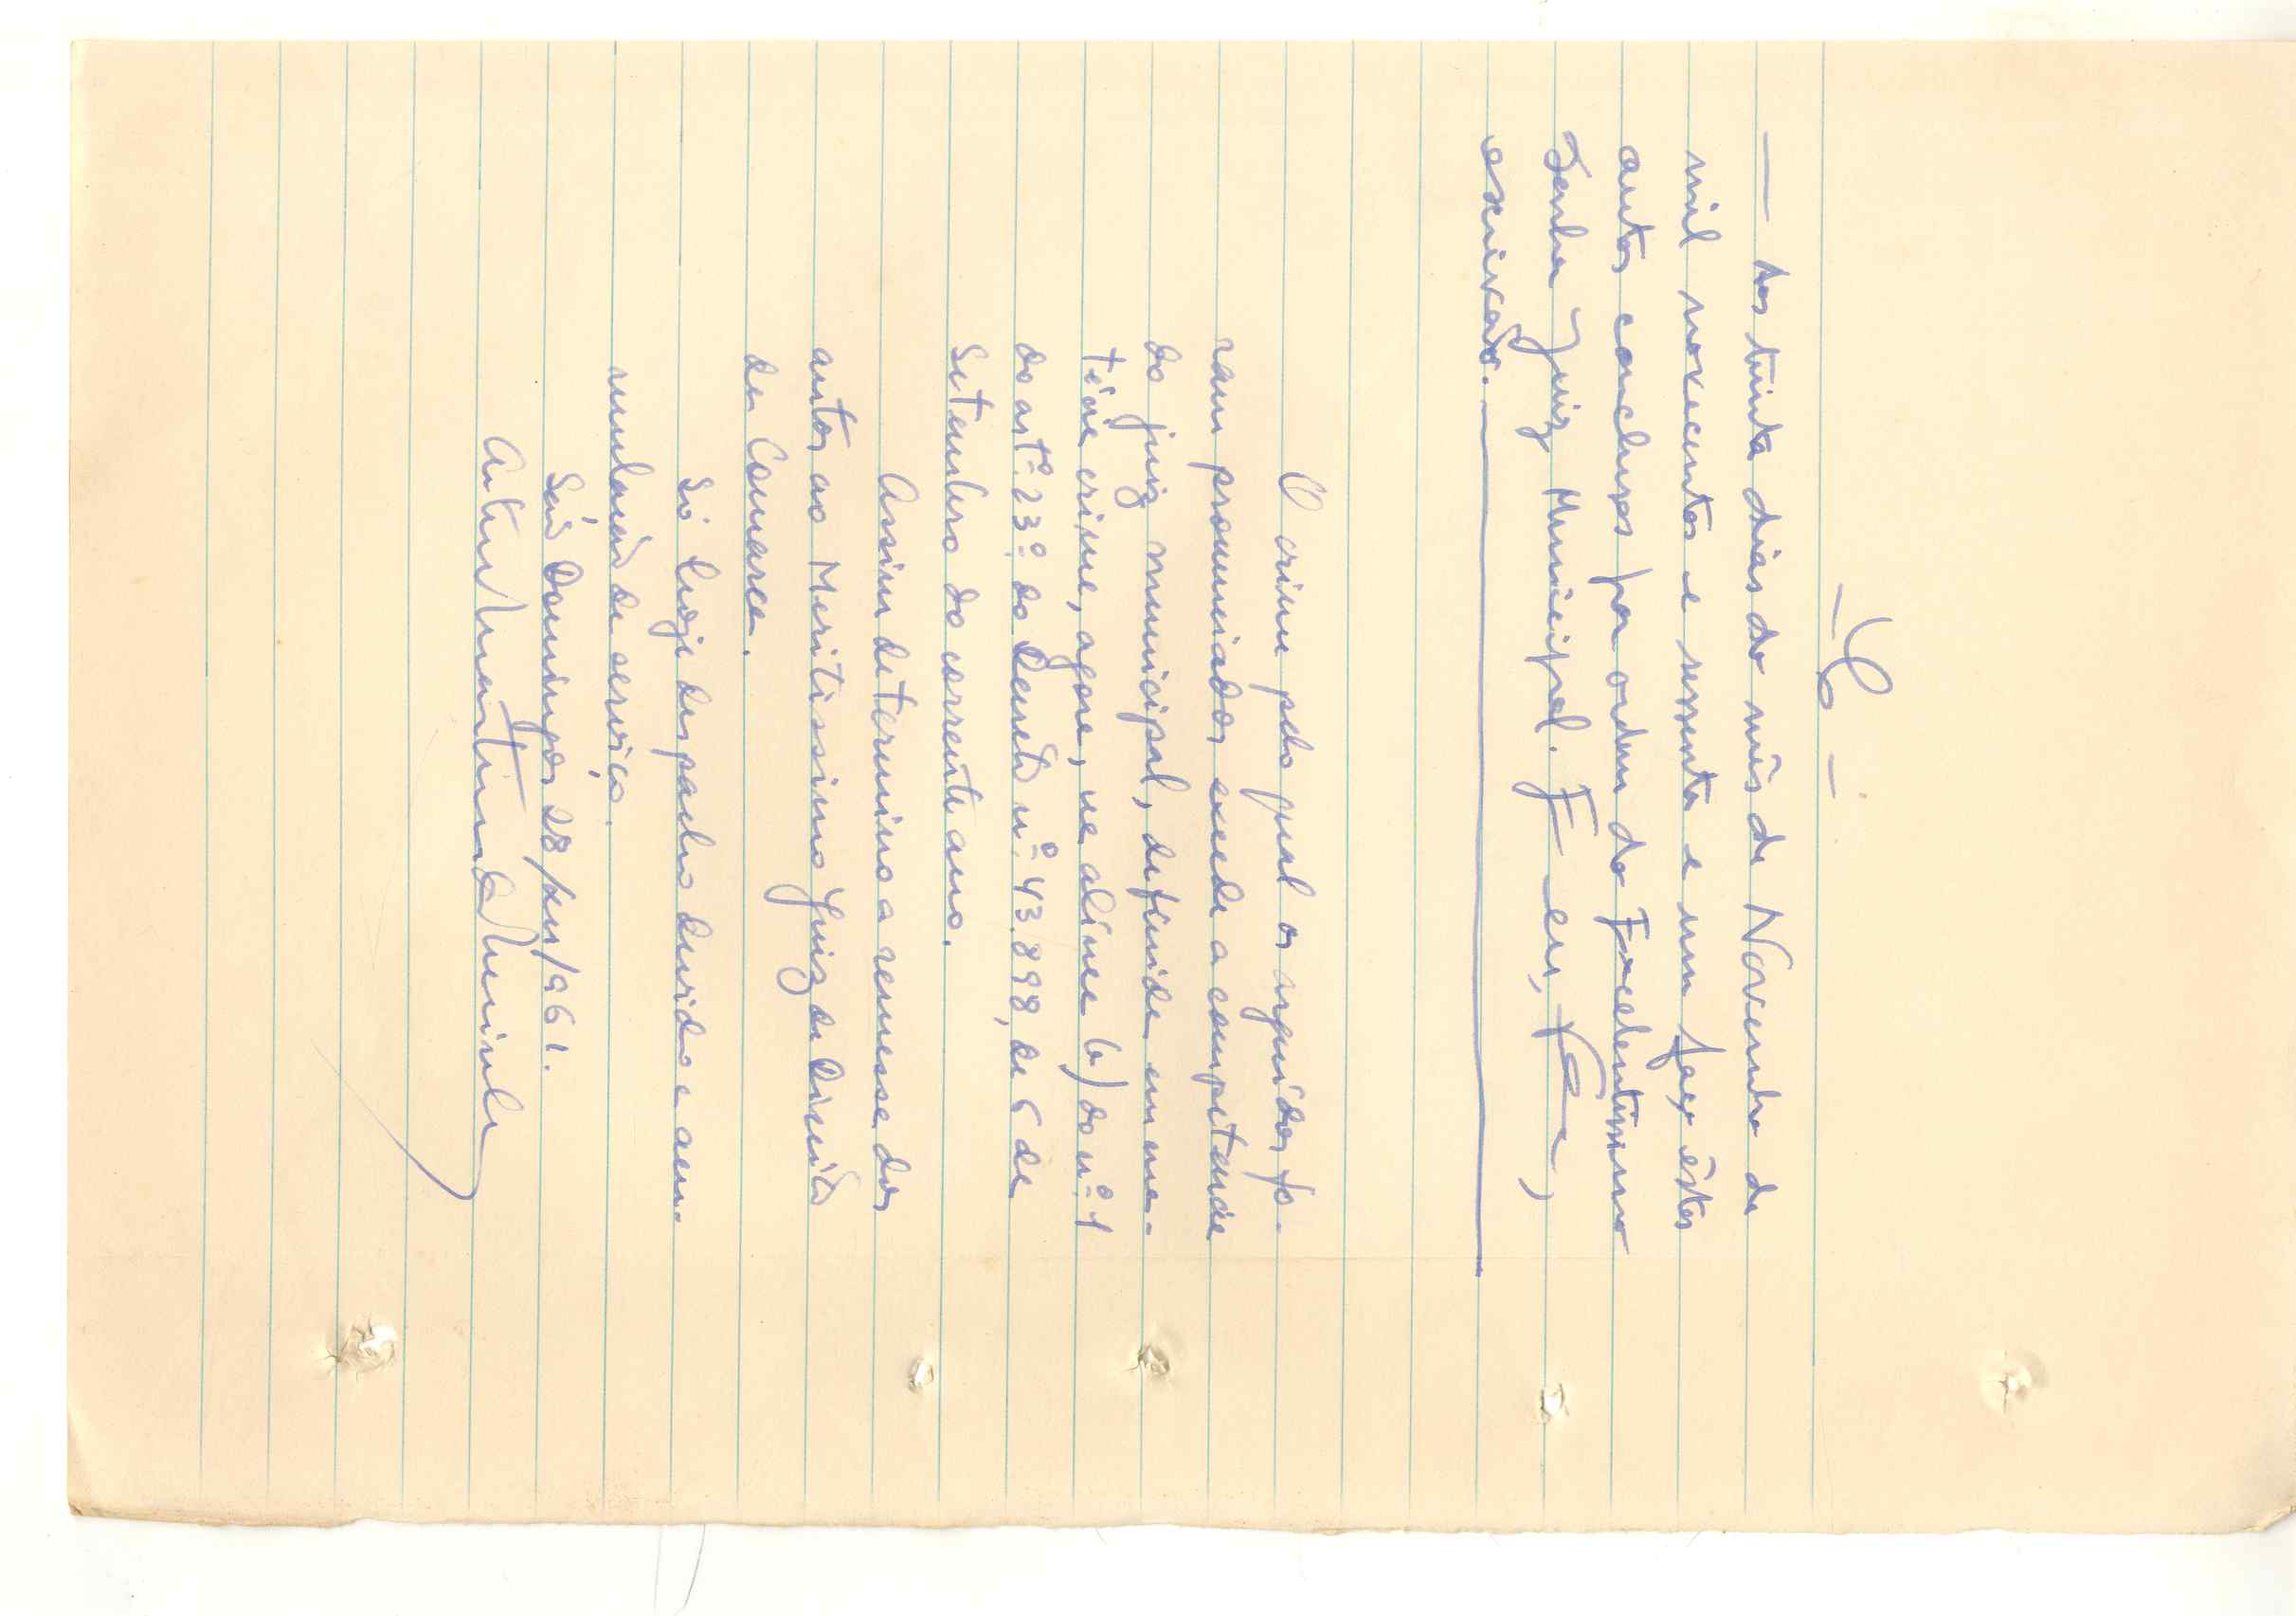 - C -
— Aos trinta dias do mês de Novembro de
mil novecentos e sessenta e um faço êstes
autos conclusos por ordem do Excelentíssimo
Senhor Juiz Municipal. E eu,
escrivão. —
O crime pelo qual os arguidos fo-
ram pronunciados excede a competência
do juiz municipal, definida em ma-
téria crime, agora, na alínea b) do n.º 1
do art.º 23.º do Decreto n.º 43.898, de 6 de
Setembro do corrente ano.
Assim determino a remessa dos
autos ao Meritissimo Juiz de Direito
da Comarca.
Só hoje despacho devido a acu-
mulação de serviço.
São Domingos 28/XII/961.